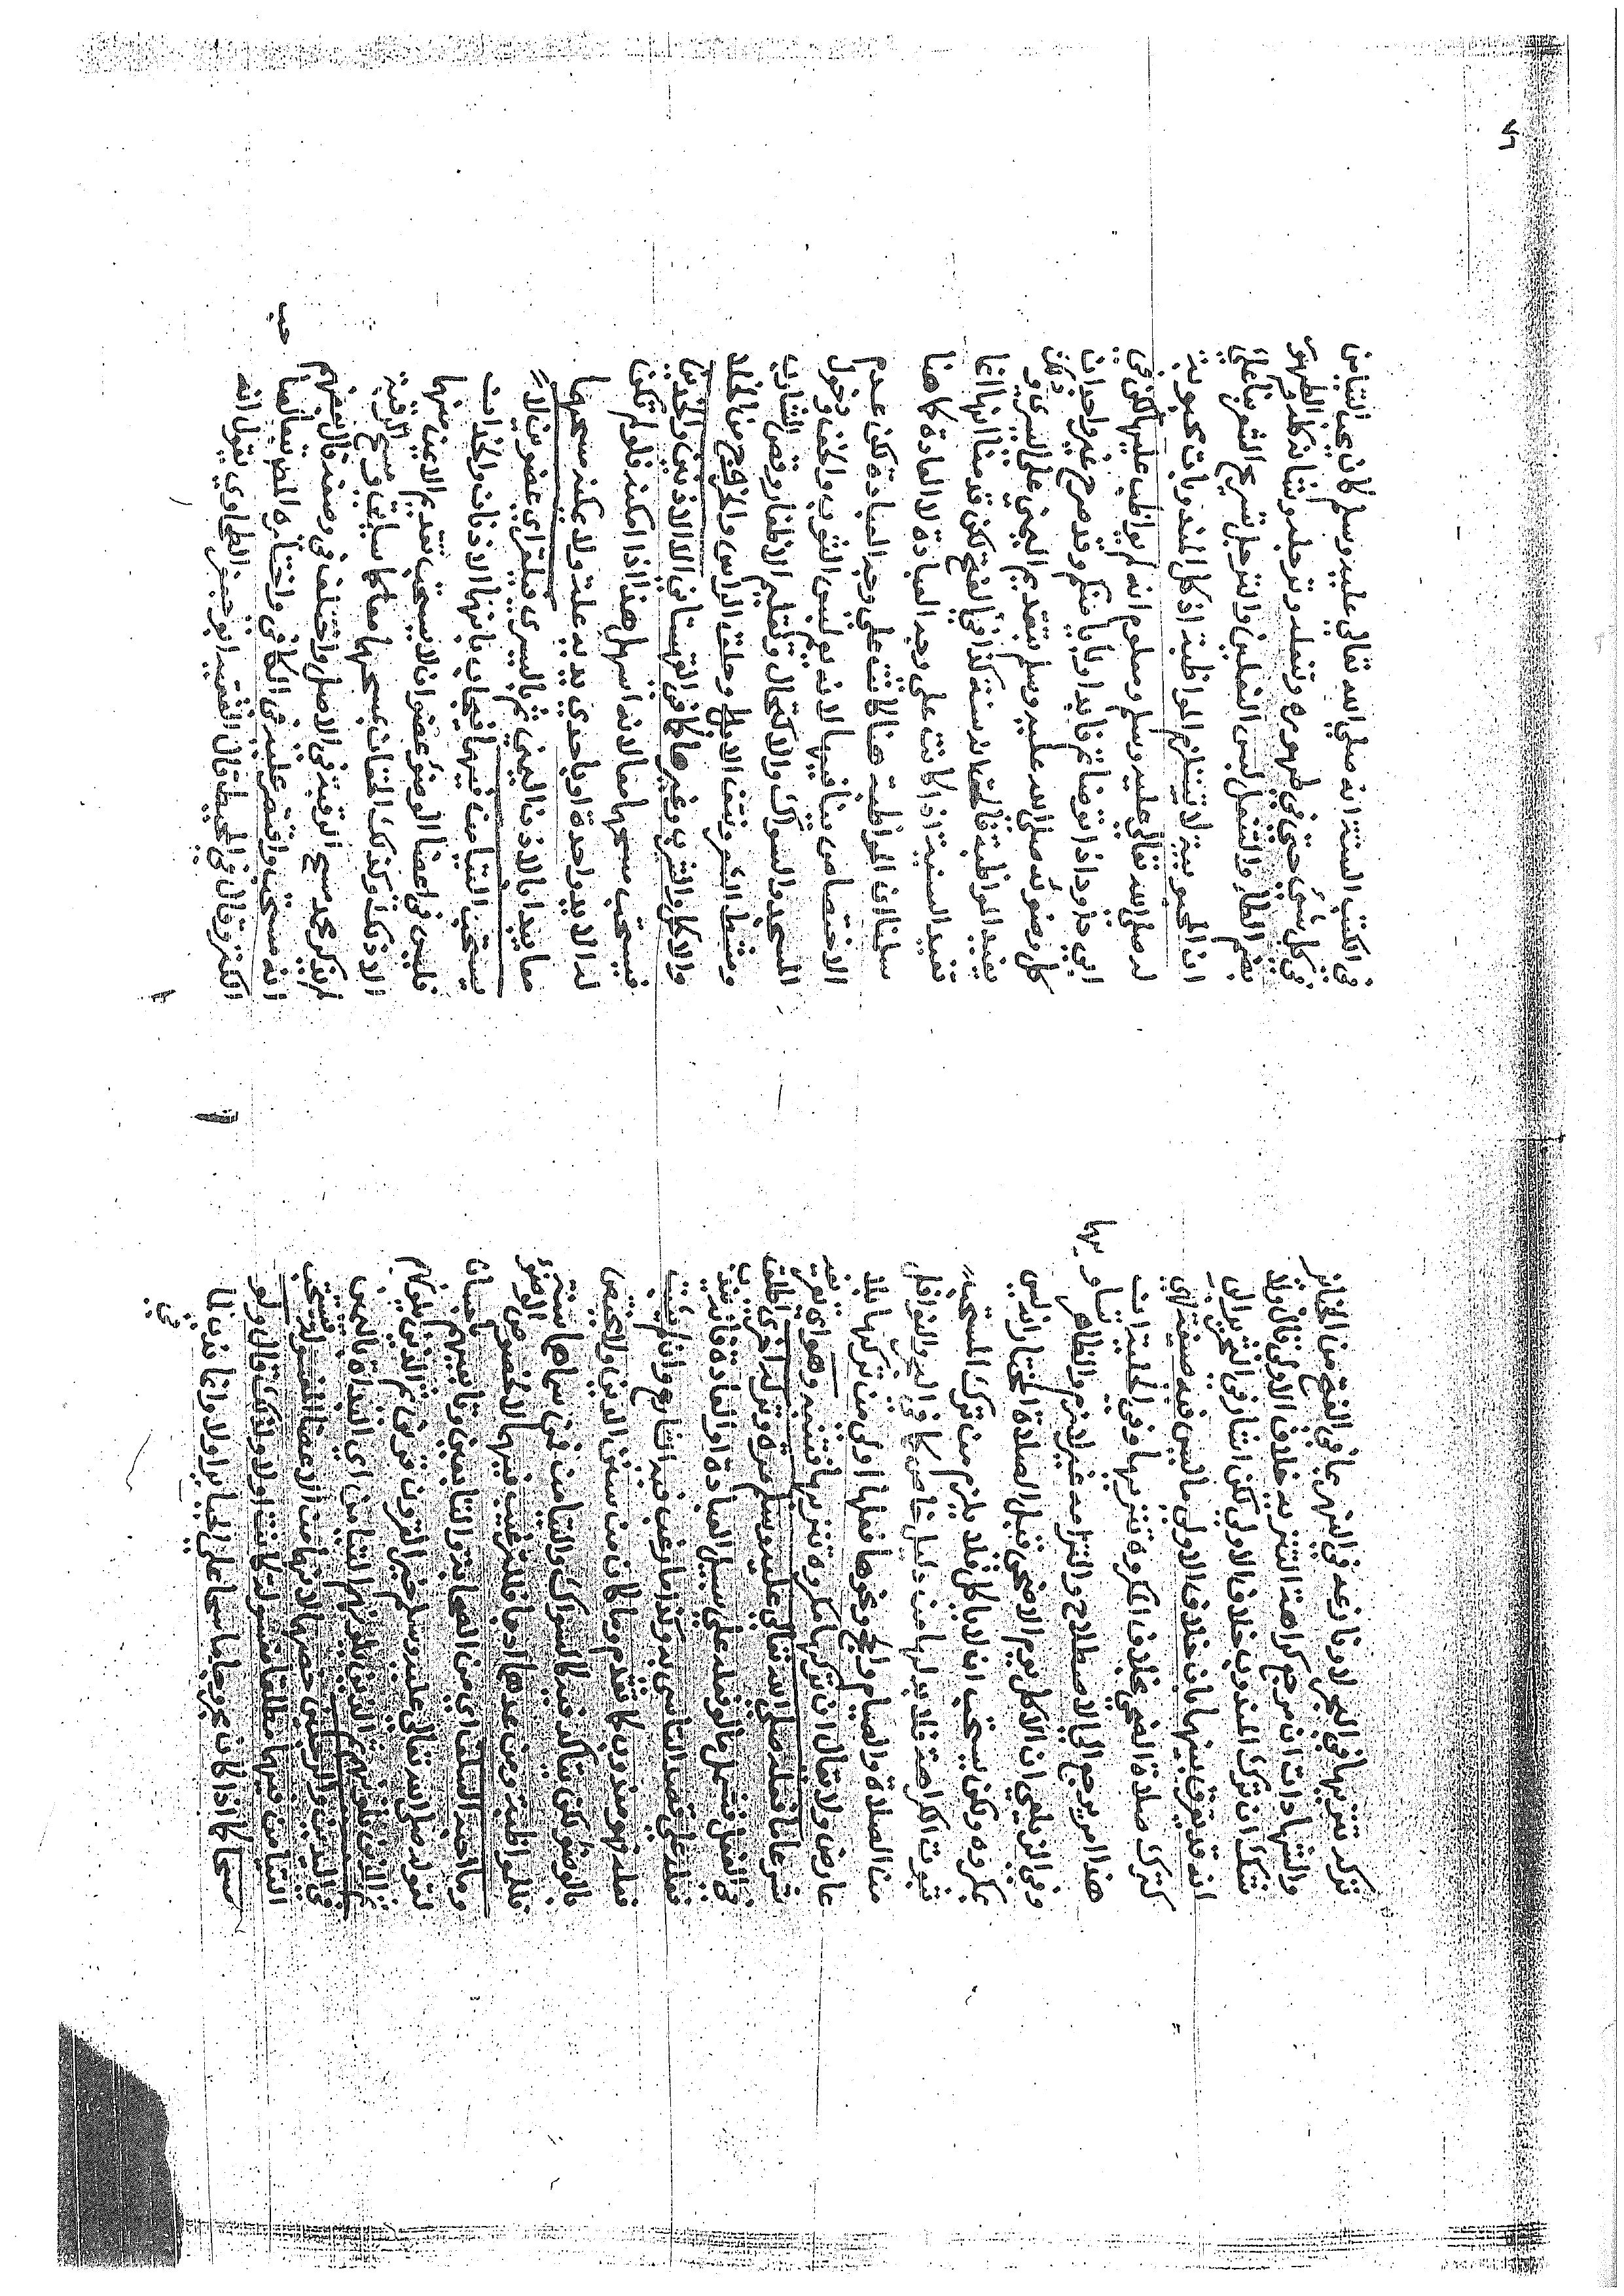 تركه تنزيها في البحر لا ونازعه في النهر بما في الفتح من الجنائز
والشهادات ان مرجع كراهة التنزيه خلاف الاولى قال ولا
شك ان ترك المندوب خلاف الاولى لكن اشار في التحرير الى
انه قد يفرق بينهما بان خلاف الاولى ما ليس فيه صيغة نهي
كترك صلاة الضحى بخلاف المكروه تنزيها وفي الحلية ان
هذا امر يرجع الى الاصطلاح والتزامه غير لازم والظاهر تساويهما
وفي الزيلعي ان الاكل يوم الاضحى قبل الصلاة المختار انه ليس
بمكروه ولكن يستحب ان لا ياكل فلا يلزم من ترك المستحب
ثبوت الكراهة فلا بد لها من دليل خاص كما في البحر والنوافل
من الصلاة والصيام والحج ونحوها فعلها اولى من تركها بلا
عارض ولا يقال ان تركها مكروه تنزيها فتنبه وهو اي
شرعا ما فعله صلى الله تعالى عليه وسلم مرة وتركه اخرى اطلقه
في الفعل فشمل ما لو فعله على سبيل العبادة او العادة فانه
فعله على قصد التاسي به وكذا ما رغب فيه الشارع وان لم يثبت
فعله فهو مندوب كما تقدم وما كان من سنن الدين ولا يختص
بالوضوء لكن يتاكد فيه كالسواك والتيامن فمن سماها سنة
فللمواظبة ومن عدها ادبا فلترغيب فيها لا لخصوص الوضوء
وما احبه السلف اي من الصحابة والتابعين وتابعيهم باحسان
لقوله صلى الله تعالى عليه وسلم خير القرون قرني ثم الذين يلونهم
ثم الذين يلونهم ثم الذين يلونهم التيامن اي البداة باليمين
في اليدين والرجلين خصهما لانهما من الاعضاء المغسولة فيستحب
التيامن فيهما مطلقا مغسولة كانت اولا ولذلك قال ولو
مسحا كما اذا كان مجروحا ماسحا على الجباير اولا واما قدمنا
في الكتب الستة انه صلى الله تعالى عليه وسلم كان يحب التيامن
في كل شيء حتى في طهوره وتنعله وترجله وشانه كله والطهور
بضم الطاء والتنعل لبس النعلين والترجل تسريح الشعر بناء على
ان المحبوبية لا تستلزم المواظبة اذ كل المندوبات محبوبة
له صلى الله تعالى عليه وسلم ومعلوم انه لم يواظب عليها لكن في
ابي داود اذا توضاتم فابدأوا بميامنكم وقد صرح غير واحد ان
كل وضوئه صلى الله عليه وسلم بتقديم اليمنى على اليسرى وذلك
يفيد المواظبة قالحق انه سنة كذا في الفتح لكن قدمنا انها انما
تفيد السنية اذا كانت على وجه العبادة لا العادة كما هنا
سلمنا ان المواظبة هنا كانت على وجه العبادة لكن عدم
الاختصاص ينافيها لانه يعم لبس الثوب والخف ودخول
المسجد والسواك والاكتحال وتقليم الاظفار وقص الشارب
ومشط الشعر ونتف الابط وحلق الراس والخروج من الخلاء
والاكل والشرب وغيرها كما في القهستاني الا الاذنين والخدين
فيستحب مسحهما معا لانه اسهل هذا اذا امكنه فلو لم يكن
له الا يد واحدة او باحدى يديه علة ولا يمكنه مسحهما
معا يبدا بالاذن اليمنى ثم باليسرى فيلغز اي عضوين لا
يستحب التيامن فيهما فيجاب بانهما الاذنان والخدان
فليس في اعضا الوضوء عضوان لا يستحب تقديم الايمن منهما
الا ذلك وكذلك الخفان يمسحهما معا كما سياتي ومسح الرقبة
لم يذكر محمد مسح الرقبة في الاصل واختلف في وصفه قال بعضهم
انه مستحب واقتصر عليه في الكافي واختاره المص تبعا لصاحب
الكنز وقال في المحيط قال الفقيه ابو جعفر الطحاوي يقول انه